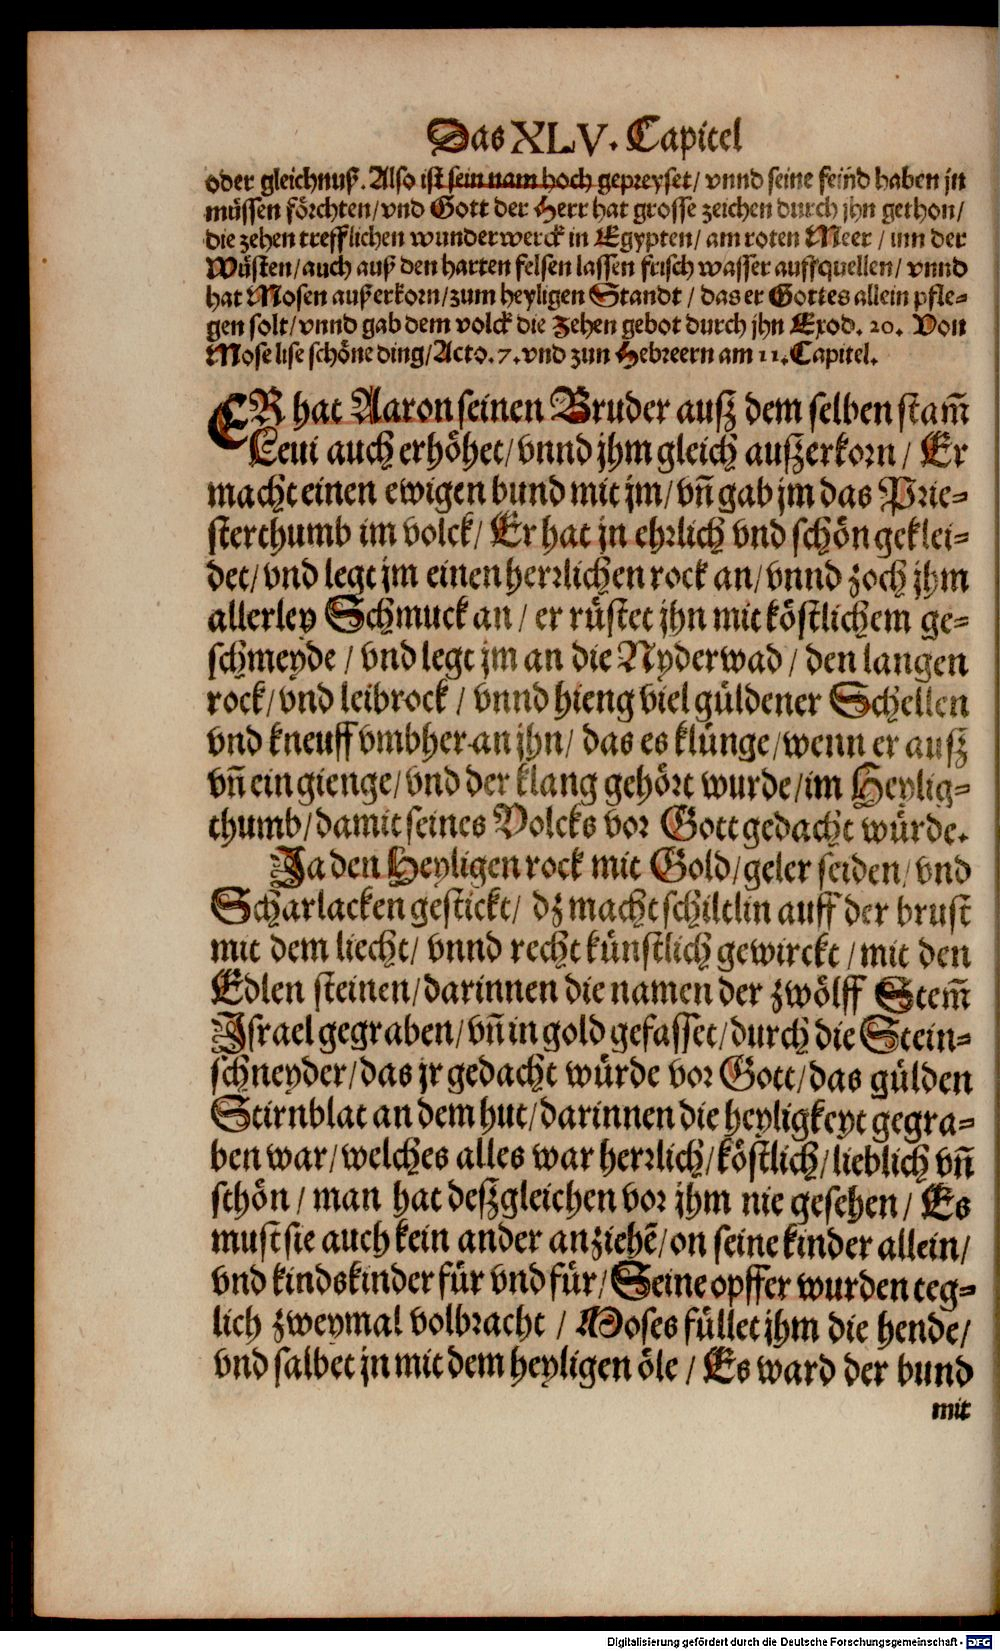 Das XLV. Capitel
oder gleichnuß. Also ist sein nam hoch gepreyset / vnnd seine feind haben jn
müssen förchten / vnd Gott der Herr hat grosse zeichen durch jhn gethon /
die zehen trefflichen wunderwerck in Egypten / am roten Meer / inn der
Wüsten / auch auß den harten felsen lassen frisch wasser auffquellen / vnnd
hat Mosen außerkorn / zum heyligen Standt / das er Gottes allein pfle-
gen solt / vnnd gab dem volck die Zehen gebot durch jhn Exod. 20. Von
Mose lise schöne ding / Acto. 7. vnd zun Hebreern am 11. Capitel.
ER hat Aaron seinen Bruder auß dem selben stam̃
Leui auch erhöhet / vnnd jhm gleich außerkorn / Er
macht einen ewigen bund mit jm / vñ gab jm das Prie-
sterthumb im volck / Er hat jn ehrlich vnd schön geklei-
det / vnd legt jm einen herrlichen rock an / vnnd zoch jhm
allerley Schmuck an / er rüstet jhn mit köstlichem ge-
schmeyde / vnd legt jm an die Nyderwad / den langen
rock / vnd leibrock / vnnd hieng viel güldener Schellen
vnd kneuff vmbher an jhn / das es klünge / wenn er auß
vñ ein gienge / vnd der klang gehört wurde / im Heylig-
thumb / damit seines Volcks vor Gott gedacht würde.
Ja den Heyligen rock mit Gold / geler seiden / vnd
Scharlacken gestickt / dz macht schiltlin auff der brust
mit dem liecht / vnnd recht künstlich gewirckt / mit den
Edlen steinen / darinnen die namen der zwölff Stem̃
Israel gegraben / vñ in gold gefasset / durch die Stein-
schneyder / das jr gedacht würde vor Gott / das gülden
Stirnblat an dem hut / darinnen die heyligkeyt gegra-
ben war / welches alles war herrlich / köstlich / lieblich vñ
schön / man hat deßgleichen vor jhm nie gesehen / Es
must sie auch kein ander anziehẽ / on seine kinder allein /
vnd kindskinder für vnd für / Seine opffer wurden teg-
lich zweymal volbracht / Moses füllet jhm die hende /
vnd salbet jn mit dem heyligen öle / Es ward der bund
mit
Digitalisierung gefördert durch die Deutsche Forschungsgemeinschaft - DFG